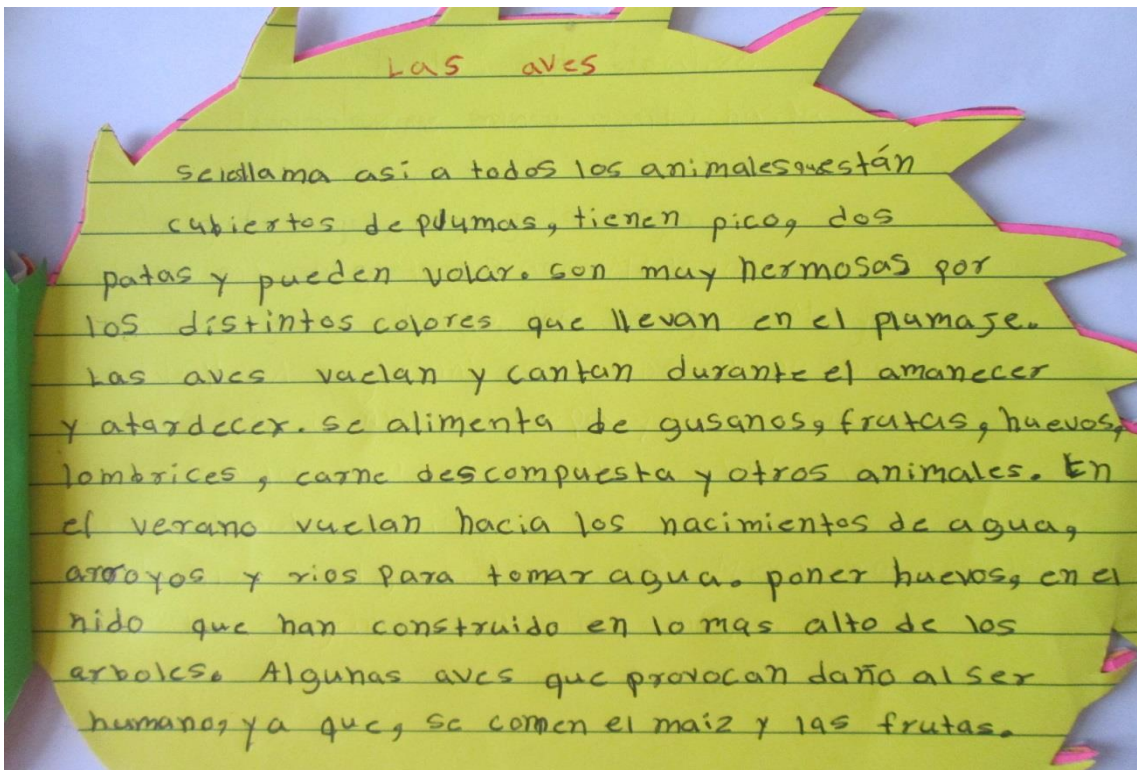 Las aves
se les llama así a todos los animales que están
cubiertos de plumas, tienen pico, dos
patas y pueden volar. son muy hermosas por
los distintos colores que llevan en el plumaje.
Las aves vuelan y cantan durante el amanecer
y atardecer. se alimenta de gusanos, frutas, huevos,
lombrices, carne descompuesta y otros animales. En
el verano vuelan hacia los nacimientos de agua,
arroyos y rios para tomar agua. poner huevos, en el
nido que han construido en lo mas alto de los
arboles. Algunas aves que provocan daño al ser
humano, ya que, se comen el maiz y las frutas.